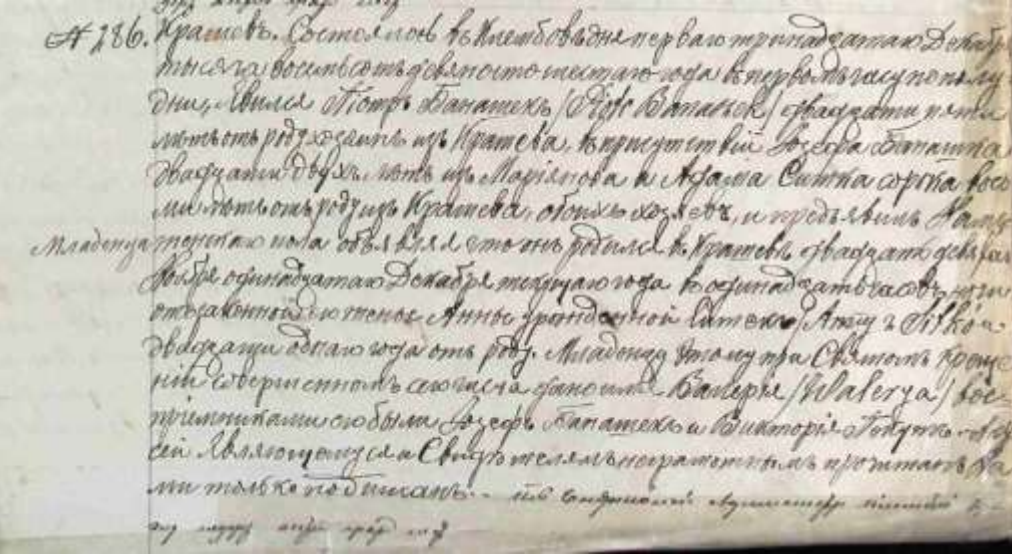 № 286. Крашевъ. Состоялось въ Клембовѣ дня перваго тринадцатаго Декабря
тысяча восемьсотъ девяносто шестаго года въ первомъ часу по полу
дни, Явился Петръ Банашекъ /Piotr Banaszek/ двадцати пяти
лѣтъ отъ роду хозяинъ изъ Крашева, въ присутствіи Іозефа Банашка
двадцати двухъ лѣтъ изъ Маріянова и Адама Ситка сорока вось
ми лѣтъ отъ роду изъ Крашева, обоихъ хозяевъ, и предъявилъ Намъ
Младенца женскаго пола объявляя что онъ родился въ Крашевѣ двадцать девятаго
Ноября одинадцатаго Декабря текущаго года въ одинадцать часовъ ночи
отъ законной его жены Анны урожденной Ситекъ /Anny z Sitków
двадцати однаго года отъ роду. Младенцу этому при Святомъ Креще
ніи совершенномъ сего числа дано имя Валерія /Walerya/ вос
пріемниками его были Іозефъ Банашекъ и Викторія
сей Являющемуся и Свидѣтелямъ неграмотнымъ прочитанъ На
ми только подписанъ.